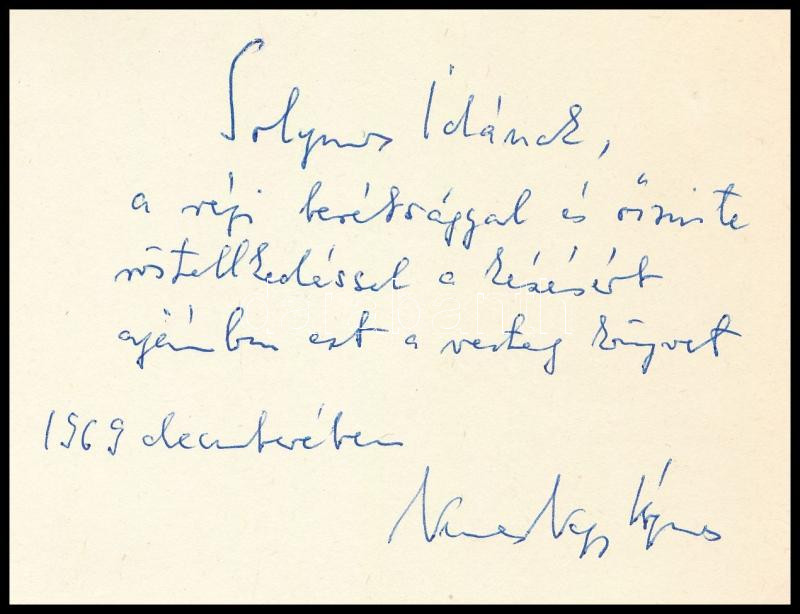 Solymos Idának,
a régi barátsággal és őszinte
röstellkedéssel a késésért
ajánlom ezt a vastag könyvet
1969 decemberében
Nemes Nagy Ágnes